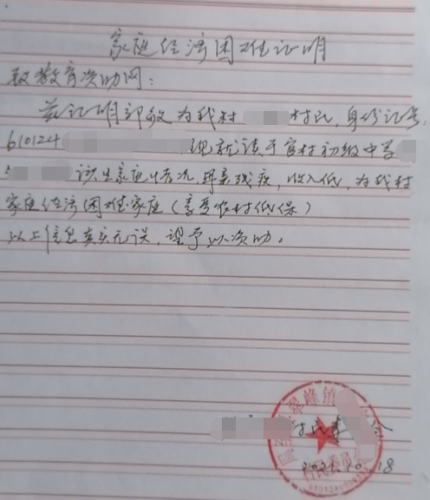 家庭经济困难证明
教育资助网：
兹证明郭毅为我村 村民，身份证号
610124 现就读于官村初级中学
该生家庭情况 残疾，收入低，为我村
家庭经济困难家庭（享受农村低保）
以上信息真实无误，望予以资助。
18